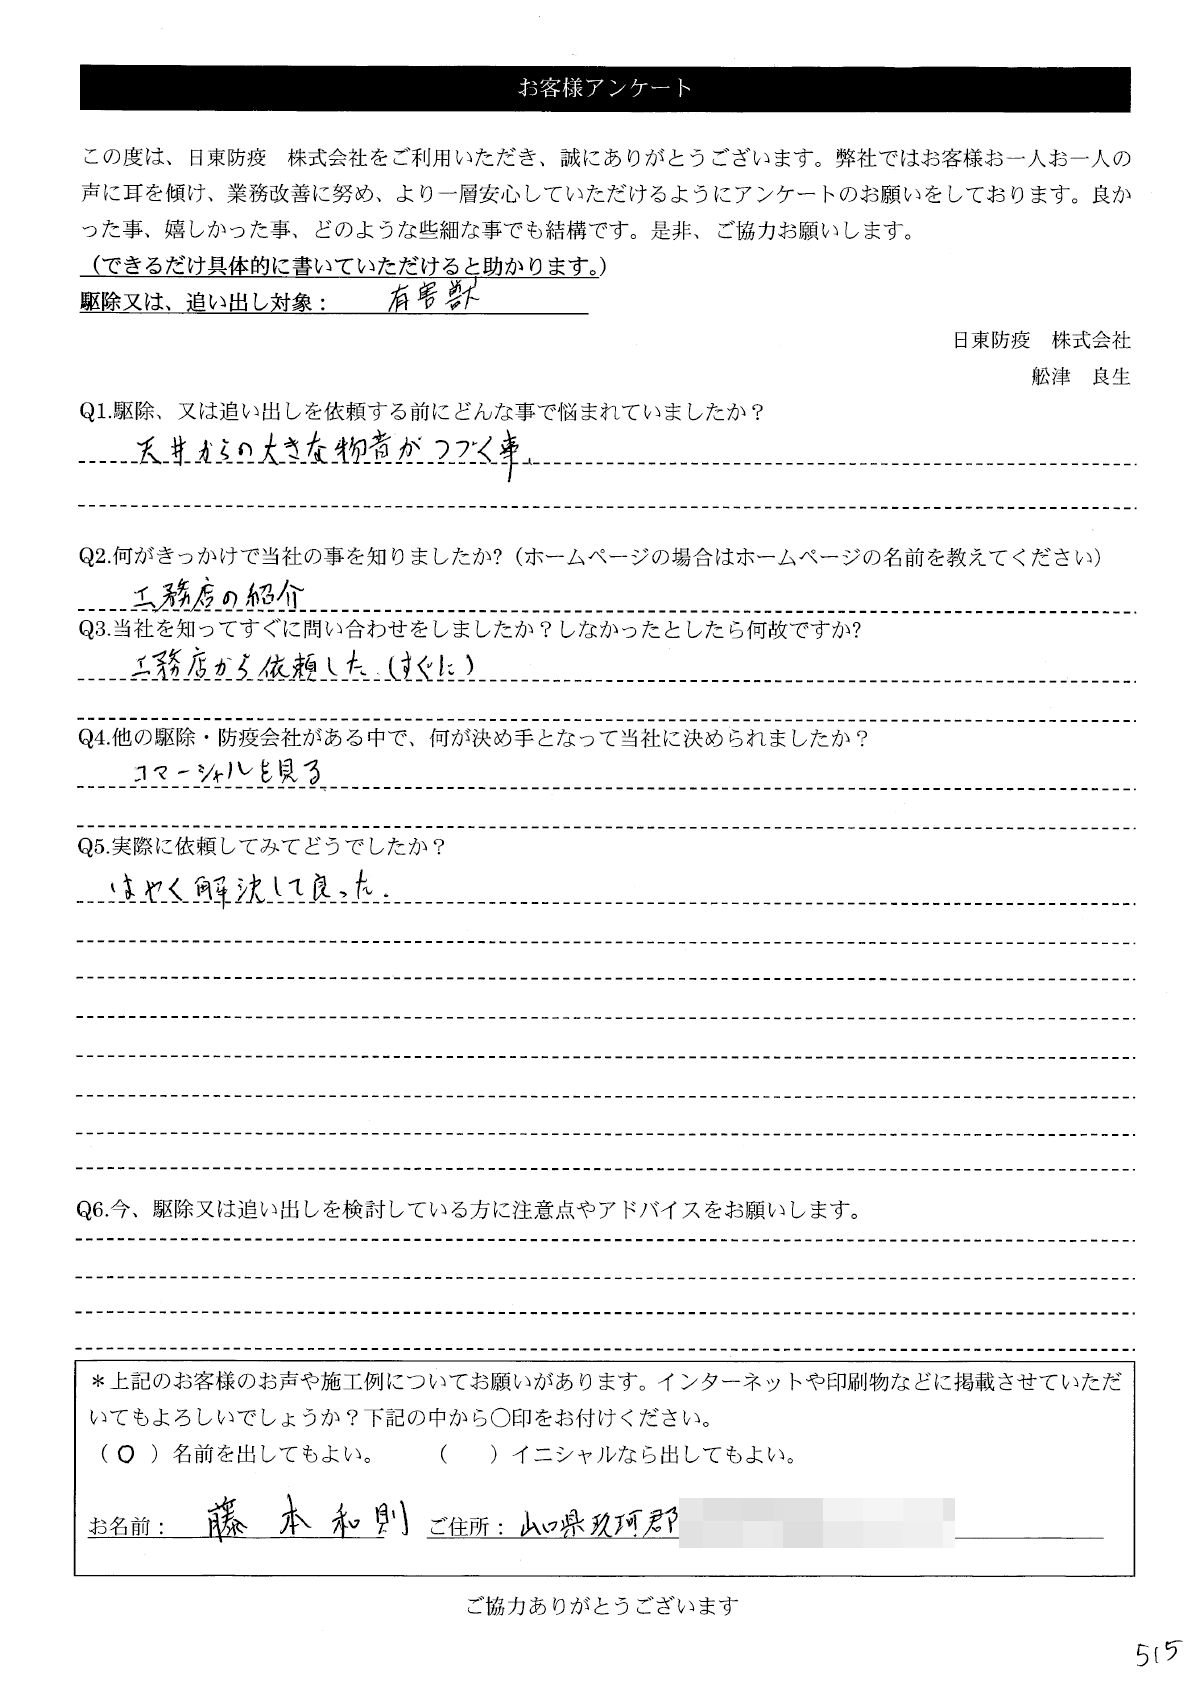 お客様アンケート
この度は、日東防疫　株式会社をご利用いただき、誠にありがとうございます。弊社ではお客様お一人お一人の
声に耳を傾け、業務改善に努め、より一層安心していただけるようにアンケートのお願いをしております。良か
った事、嬉しかった事、どのような些細な事でも結構です。是非、ご協力お願いします。
（できるだけ具体的に書いていただけると助かります。）
駆除又は、追い出し対象：　有害獣
日東防疫　株式会社
舩津　良生
Q1.駆除、又は追い出しを依頼する前にどんな事で悩まれていましたか？
天井からの大きな物音がつづく事、
Q2.何がきっかけで当社の事を知りましたか?（ホームページの場合はホームページの名前を教えてください）
工務店の紹介
Q3.当社を知ってすぐに問い合わせをしましたか？しなかったとしたら何故ですか?
工務店から依頼した.(すぐに)
Q4.他の駆除・防疫会社がある中で、何が決め手となって当社に決められましたか？
コマーシャルを見る
Q5.実際に依頼してみてどうでしたか？
はやく解決して良った.
Q6.今、駆除又は追い出しを検討している方に注意点やアドバイスをお願いします。
＊上記のお客様のお声や施工例についてお願いがあります。インターネットや印刷物などに掲載させていただ
いてもよろしいでしょうか？下記の中から〇印をお付けください。
（ O ）名前を出してもよい。　（　）イニシャルなら出してもよい。
お名前：　藤本和則　ご住所：山口県玖珂郡
ご協力ありがとうございます
515